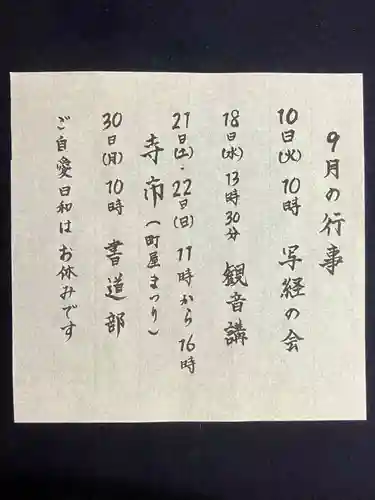 9月の行事
10日(火) 10時 写経の会
18日(水) 13時30分 観音講
21日(土)・22日(日) 11時から16時
寺市(町屋まつり)
30日(月) 10時 書道部
ご自愛日和は お休みです